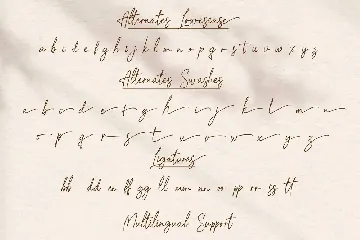 Alternates Lowercase
a b c d e f g h i j k l m n o p q r s t u v w x y z
Alternates Swashes
a b c d e f g h i j k l m n
o p q r s t u v w x y z
Ligatures
bb dd ee ff gg ll mm nn oo pp rr ss tt
Multilingual Support